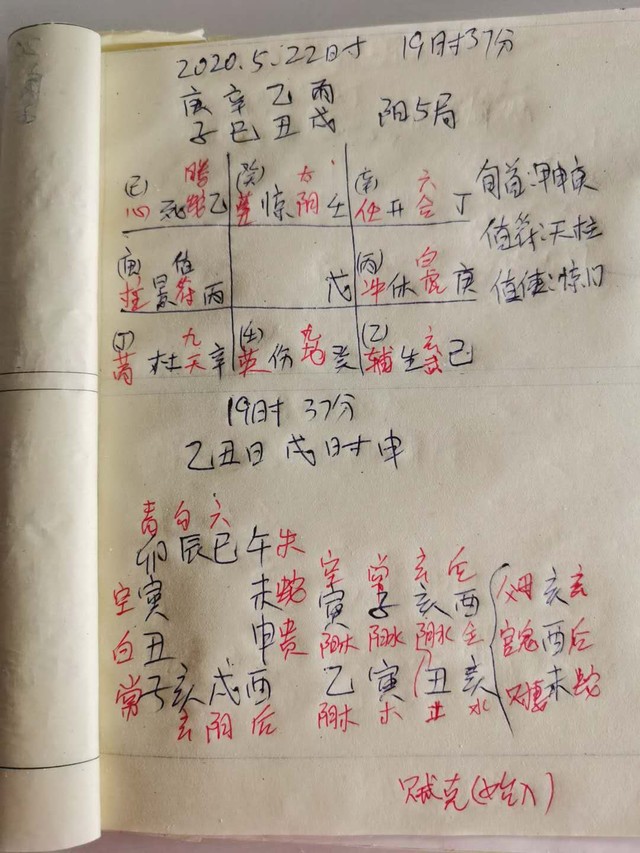 2020.5.22日寸 19时37分
庚 辛 乙 丙
子 巳 丑 戌 阳5局
(己) 腾 (癸) 太 (辛) 六 旬首:甲申庚
心 死 蛇 乙 惊 阳 壬 任 开 合 丁 值符:天柱
(庚) 值 (丙) 白 值使:惊门
柱 景 符 丙 戊 冲 休 虎 庚
(丁) 九 (壬) 九 (乙) 玄
芮 杜 天 辛 英 伤 地 癸 辅 生 武 己
19时 37分
乙丑日 戌时 申
青 白 六
卯 辰 巳 午 朱
空 寅 未 蛇 空 常 玄 后 父母 亥 玄
寅 子 亥 酉
白 丑 申 贵 阴木 阳水 阴水 金 官鬼 酉 后
常 子 亥 戌 酉 乙 寅 丑 亥 只妻 未 蛇
玄 阴 后 阴木 木 土 水
贼克(始入)